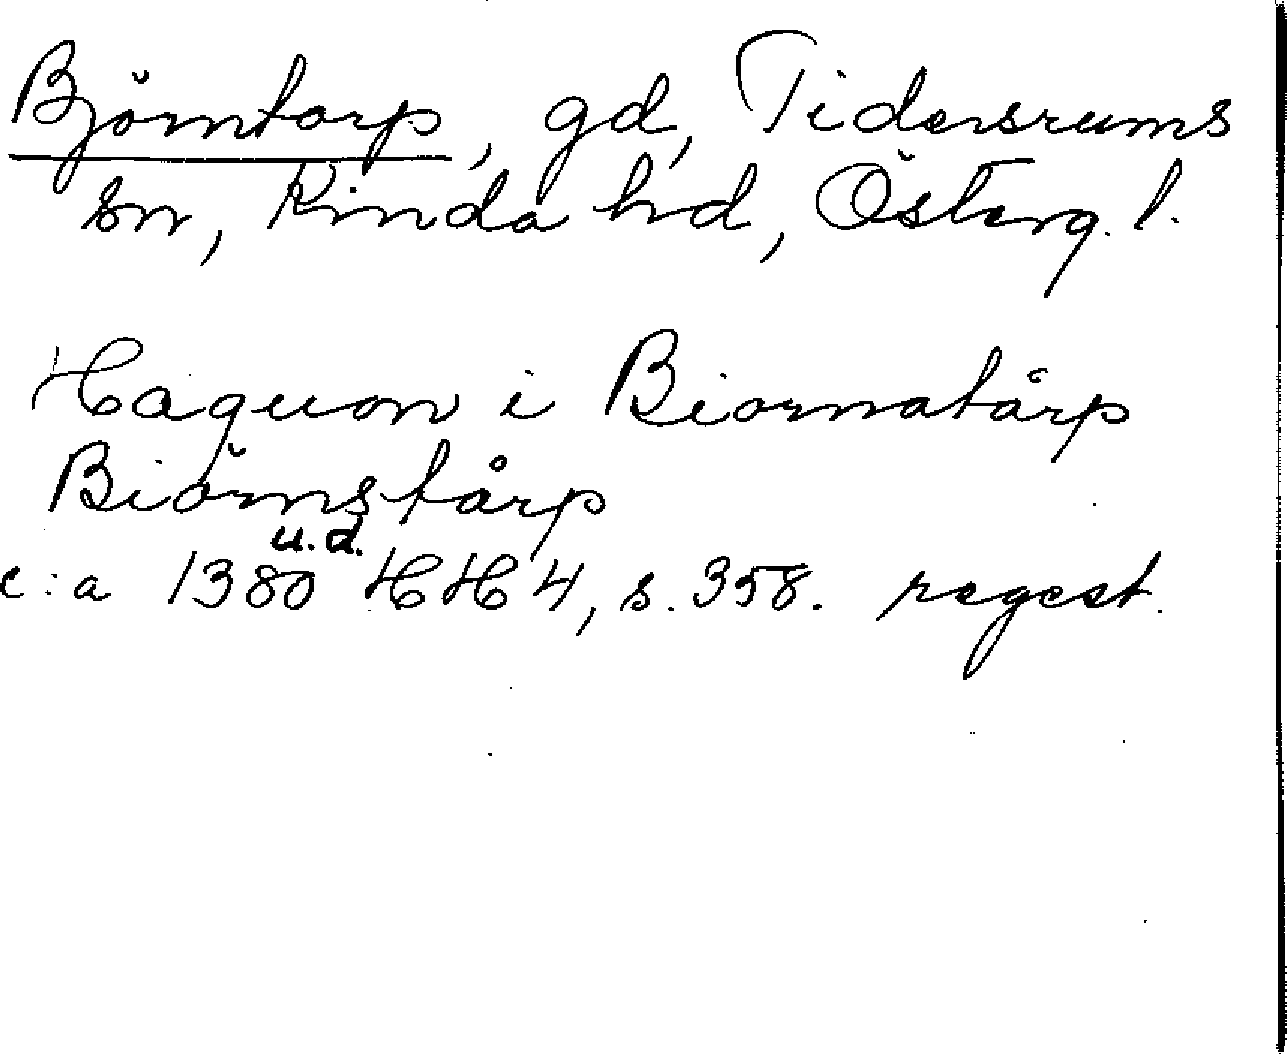 Björntorp, gd, Tidersrums
sn, Kinda hd, Österg. l.
Haquon i Biornatårp
Biörnstårp
u.d.
c:a 1380 HH 4, s. 358. regest.